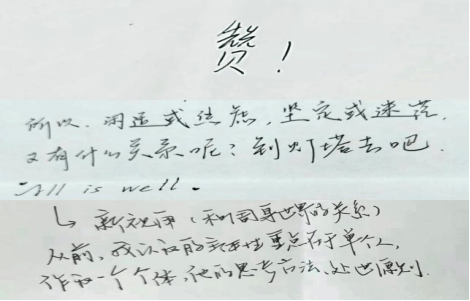 赞！
所以，闲适或焦虑，坚定或迷茫，
又有什么关系呢？到灯塔去吧．
All is well.
↳ 新视角（和周身世界的关系）
从前，我认识的主体性重点在于单个人，
作为一个个体，他的思考方法、处世原则．